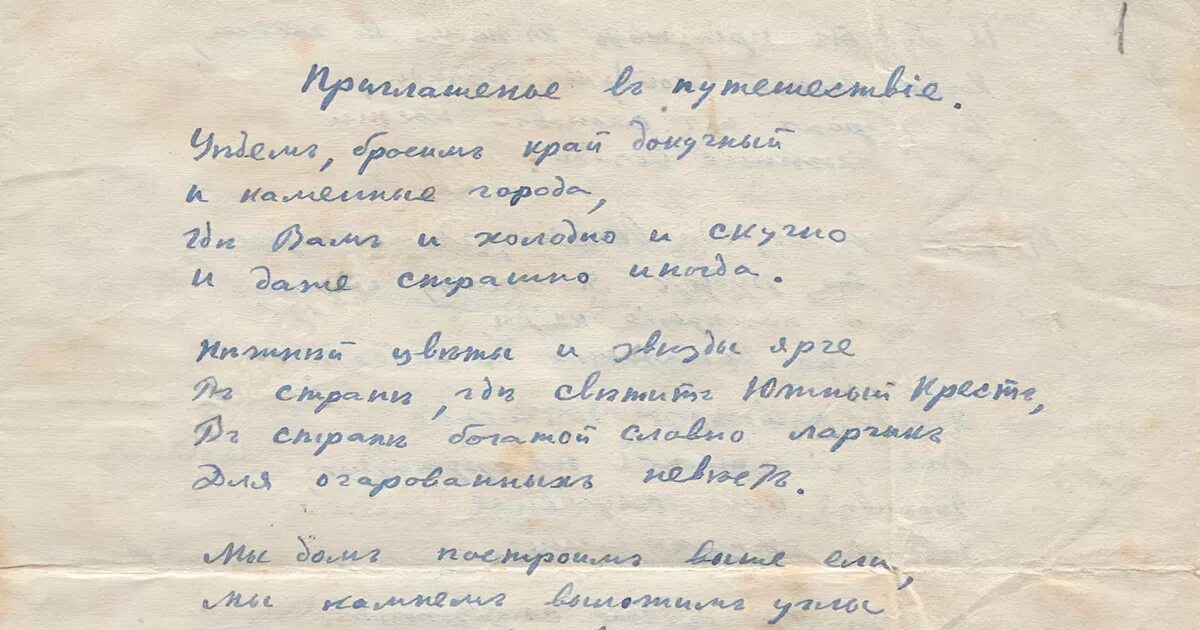 1
Приглашенье въ путешествіе.
Уѣдемъ, бросимъ край докучный
и каменные города,
гдѣ Вамъ и холодно и скучно
и даже страшно иногда.
Нѣжнѣй цвѣты и звѣзды ярче
Въ странѣ, гдѣ свѣтитъ Южный Крестъ,
Въ странѣ богатой словно ларчикъ
Для очарованныхъ невѣстъ.
Мы домъ построимъ выше ели,
Мы камнемъ выложимъ углы